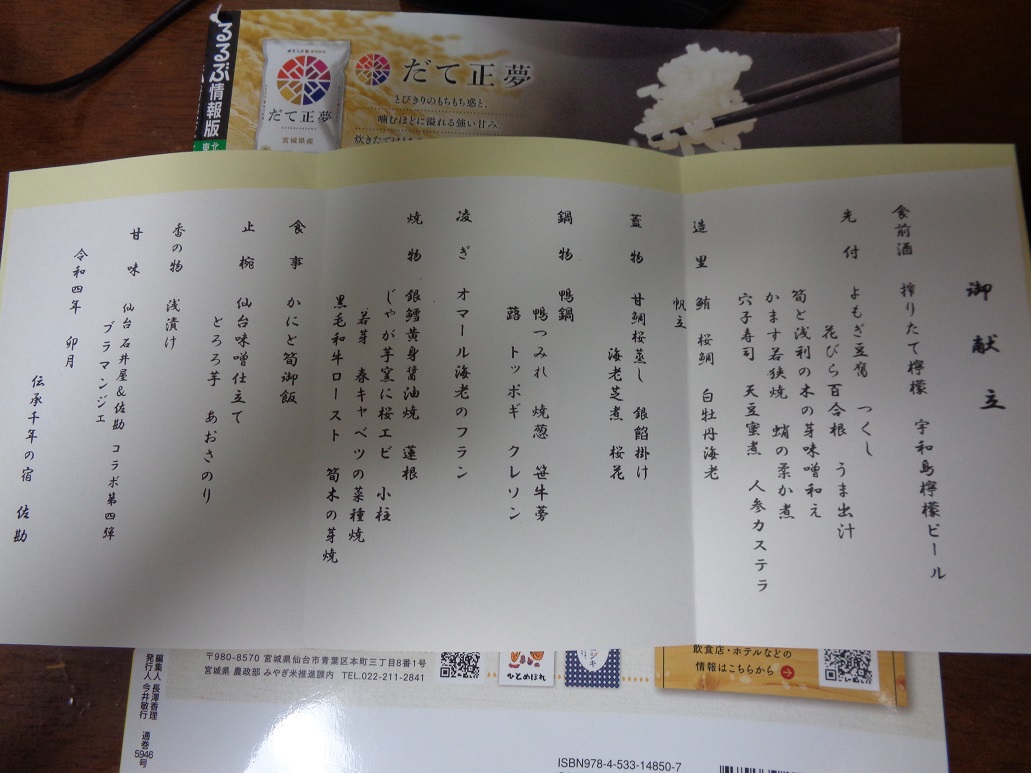 るるぶ情報版
だて正夢
宮城県産
だて正夢
とびきりのもちもち感と、
噛むほどに溢れる強い甘み。
御献立
食前酒 搾りたて檸檬 宇和島檸檬ビール
先付 よもぎ豆腐 つくし
花びら百合根 うま出汁
筍と浅利の木の芽味噌和え
かます若狭焼 蛸の柔か煮
穴子寿司 天豆蜜煮 人参カステラ
造里 鮪 桜鯛 白牡丹海老
帆立
蓋物 甘鯛桜蒸し 銀餡掛け
海老芝煮 桜花
鍋物 鴨鍋
鴨つみれ 焼葱 笹牛蒡
蕗 トッポギ クレソン
凌ぎ オマール海老のフラン
焼物 銀鱈黄身醤油焼 蓮根
じゃが芋窯に桜エビ 小柱
若芽 春キャベツの菜種焼
黒毛和牛ロースト 筍木の芽焼
食事 かにと筍御飯
止椀 仙台味噌仕立て
とろろ芋 あおさのり
香の物 浅漬け
甘味 仙台石井屋&佐勘 コラボ第四弾
ブラマンジェ
令和四年 卯月
伝承千年の宿 佐勘
〒980-8570 宮城県仙台市青葉区本町三丁目8番1号
宮城県 農政部 みやぎ米推進課内 TEL.022-211-2841
ひとめぼれ
飲食店・ホテルなどの
情報はこちらから
編集人 長澤香理
発行人 今井敏行
通巻
5946
号
ISBN978-4-533-14850-7